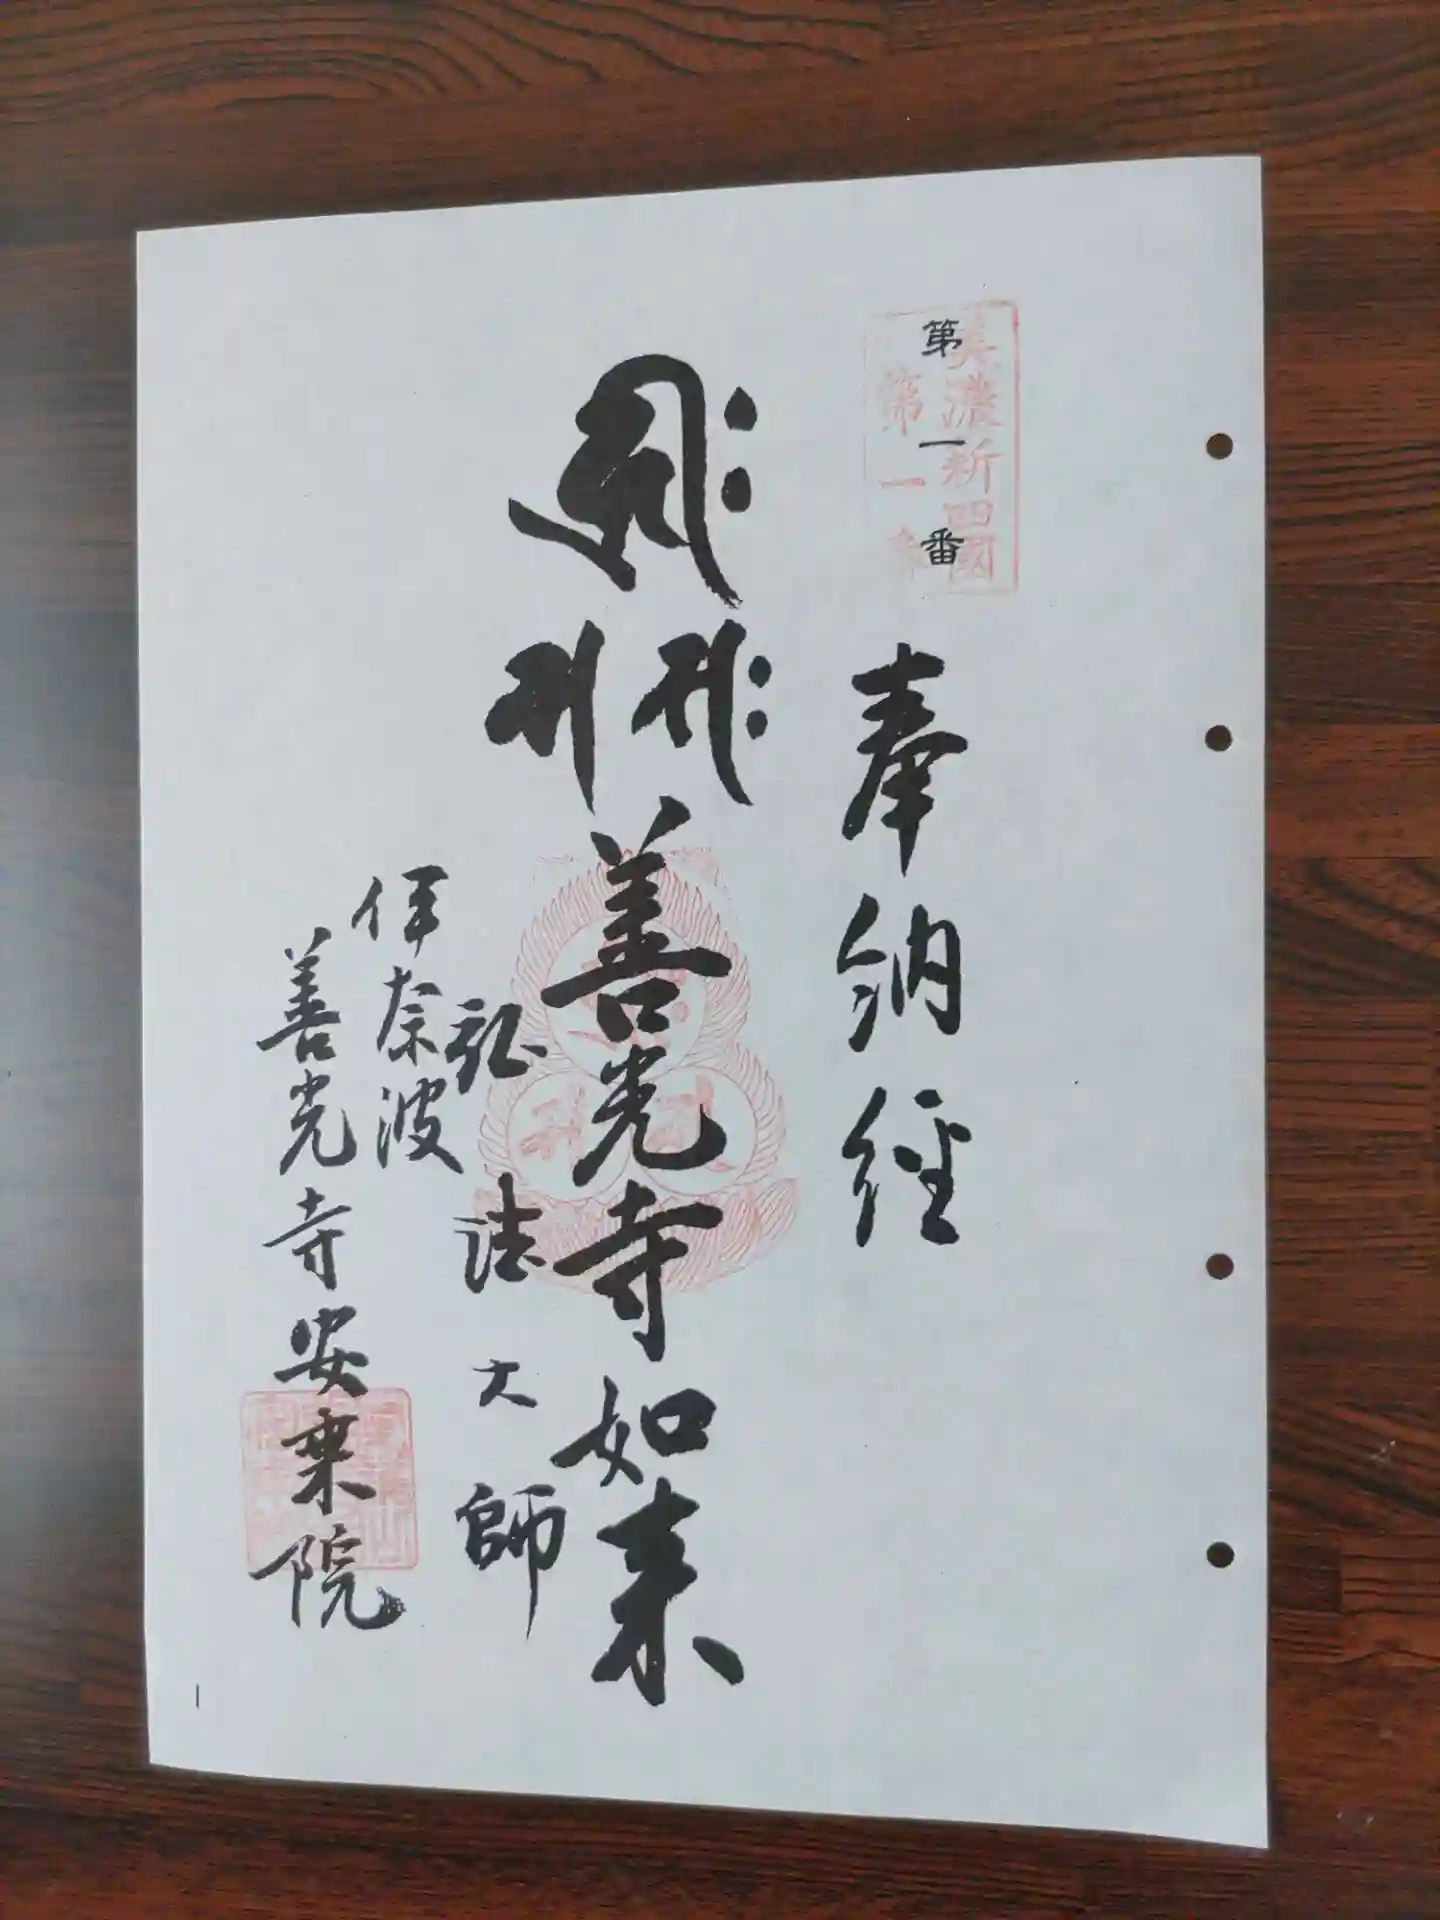 美濃新四國
第一番
第一番
奉納経
𑖮𑖿𑖨𑖱𑖾
𑖭𑖾 𑖭
善光寺如来
弘法大師
伊奈波
善光寺安乗院